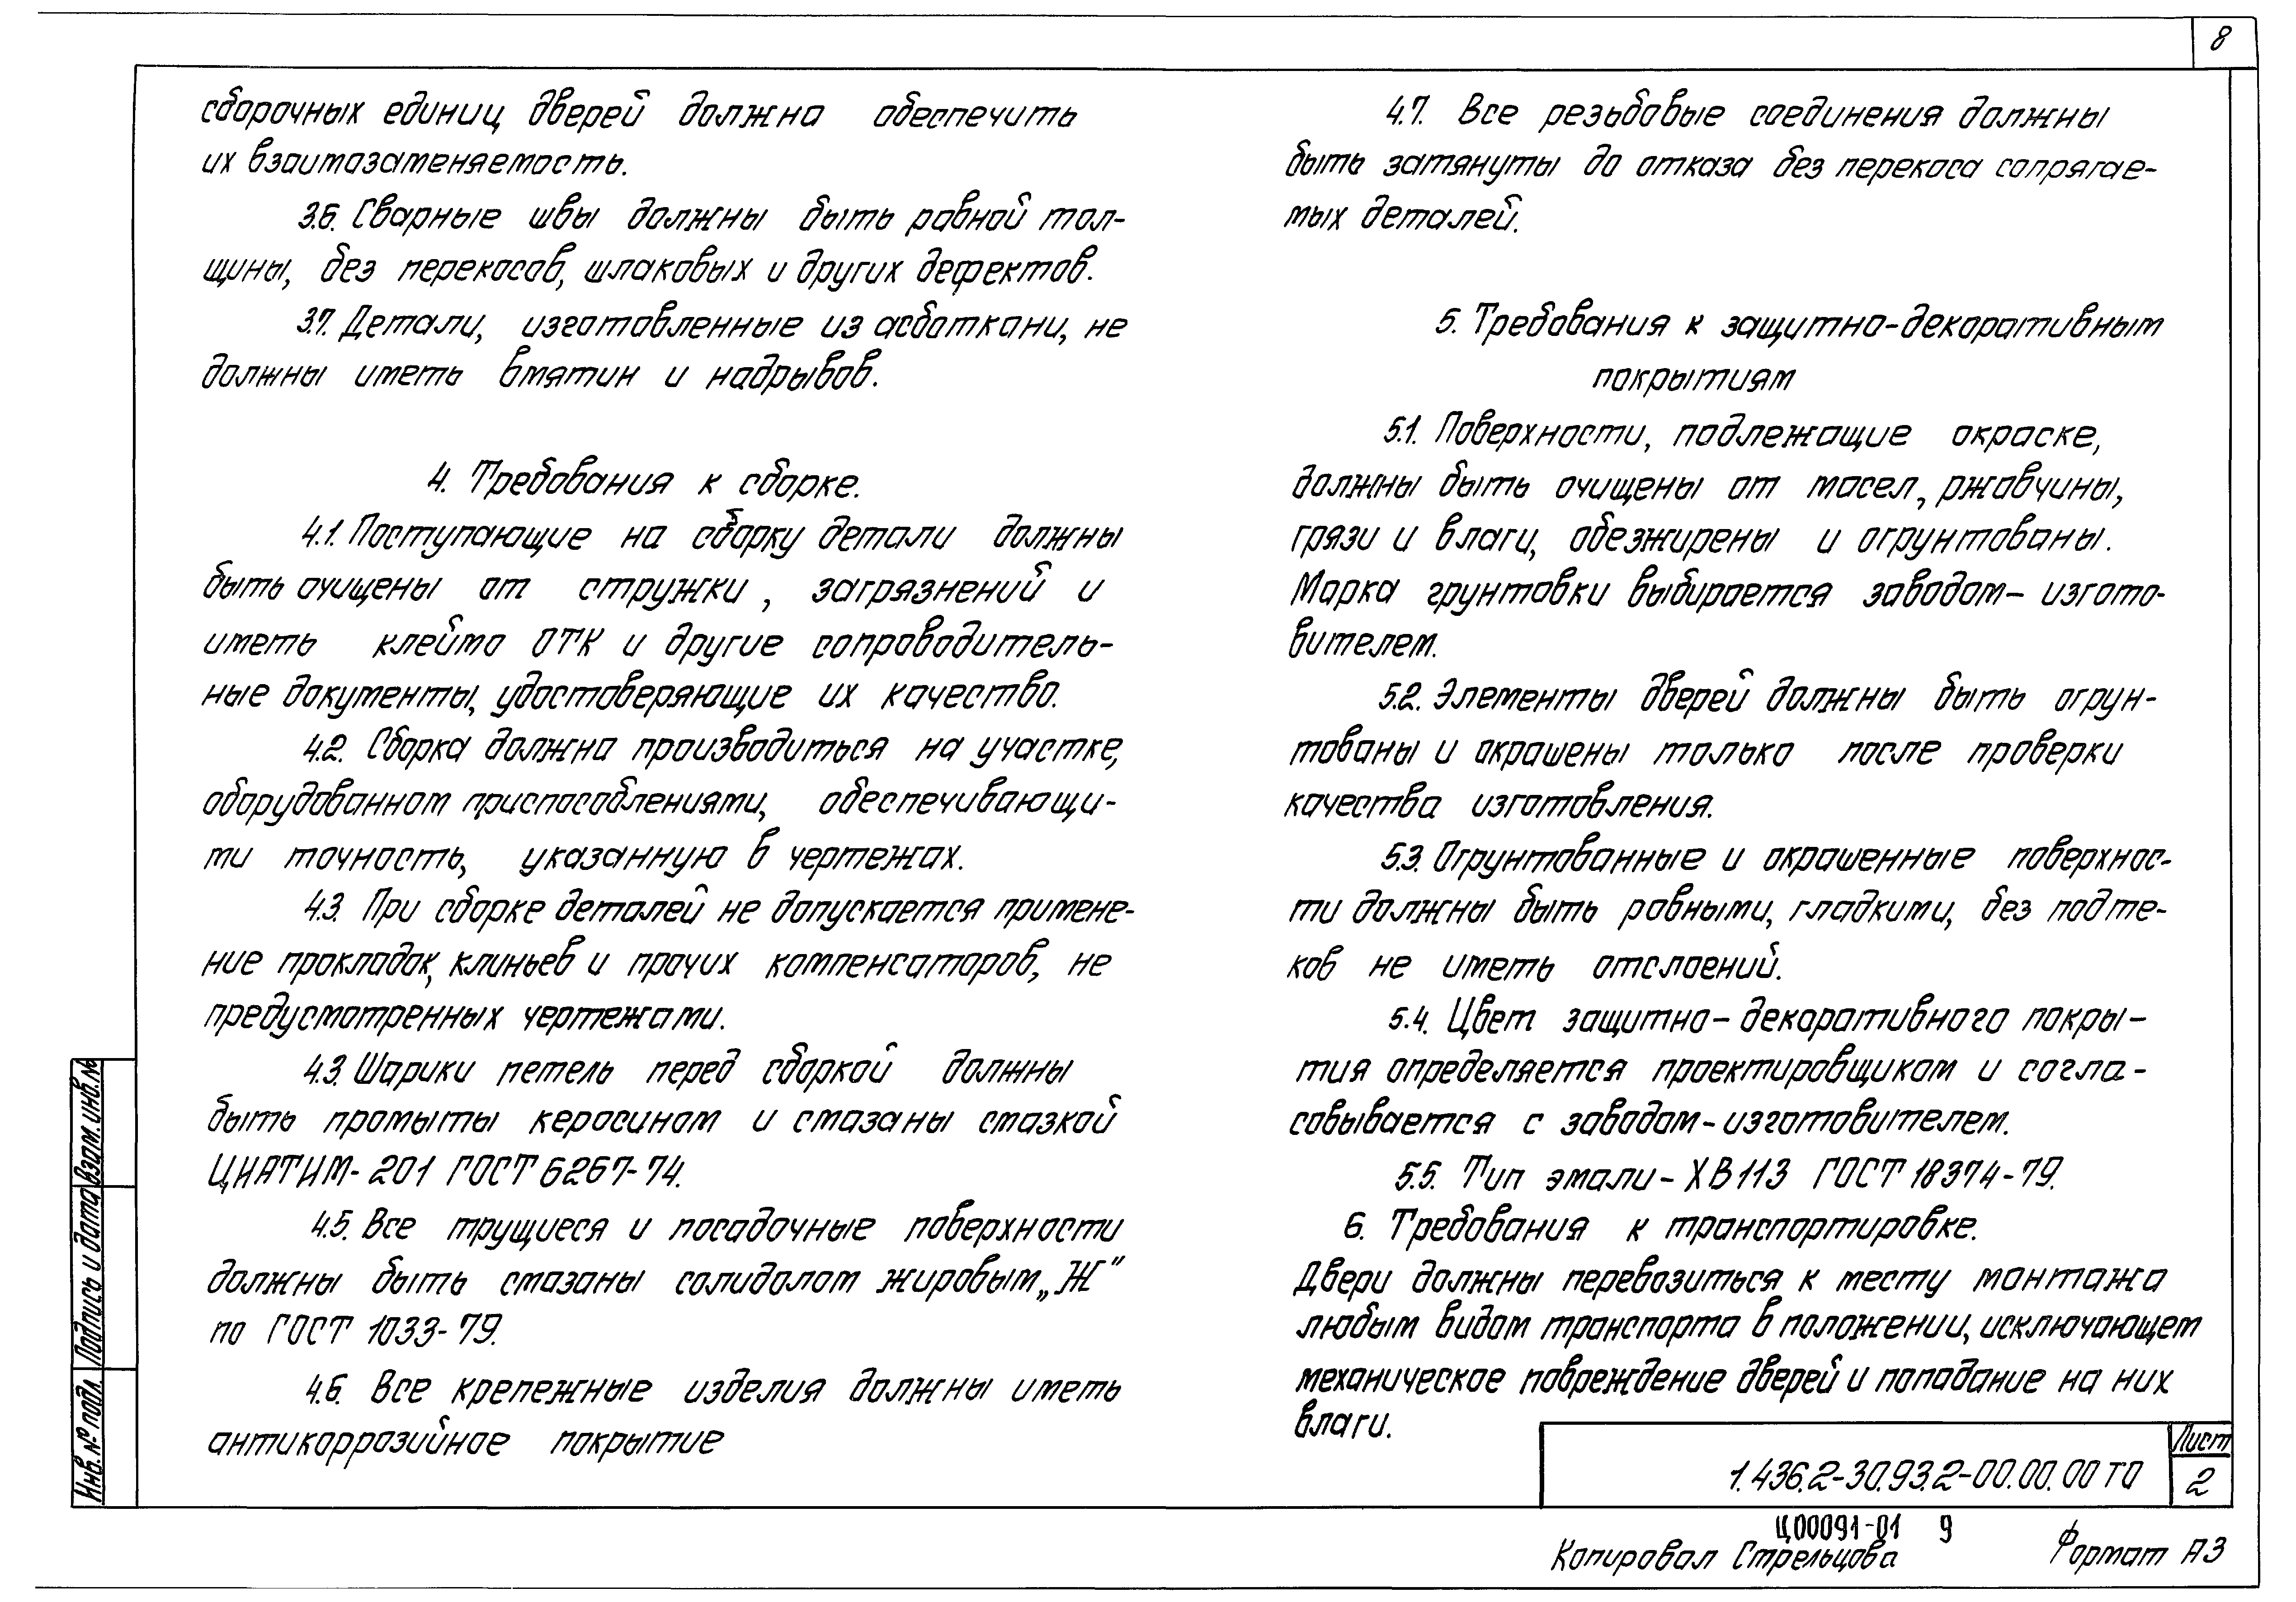 8
сборочных единиц дверей должна обеспечить
их взаимозаменяемость.
3.6. Сварные швы должны быть равной тол-
щины, без перекосов, шлаковых и других дефектов.
3.7. Детали, изготовленные из асботкани, не
должны иметь вмятин и надрывов.
4. Требования к сборке.
4.1. Поступающие на сборку детали должны
быть очищены от стружки, загрязнений и
иметь клеймо ОТК и другие сопроводитель-
ные документы, удостоверяющие их качество.
4.2. Сборка должна производиться на участке,
оборудованном приспособлениями, обеспечивающи-
ми точность, указанную в чертежах.
4.3. При сборке деталей не допускается примене-
ние прокладок, клиньев и прочих компенсаторов, не
предусмотренных чертежами.
4.3. Шарики петель перед сборкой должны
быть промыты керосином и смазаны смазкой
ЦИАТИМ-201 ГОСТ 6267-74.
4.5. Все трущиеся и посадочные поверхности
должны быть смазаны солидолом жировым „Ж"
по ГОСТ 1033-79.
4.6. Все крепежные изделия должны иметь
антикоррозийное покрытие
4.7. Все резьбовые соединения должны
быть затянуты до отказа без перекоса сопрягае-
мых деталей.
5. Требования к защитно-декоративным
покрытиям
5.1. Поверхности, подлежащие окраске,
должны быть очищены от масел, ржавчины,
грязи и влаги, обезжирены и огрунтованы.
Марка грунтовки выбирается заводом-изгото-
вителем.
5.2. Элементы дверей должны быть огрун-
тованы и окрашены только после проверки
качества изготовления.
5.3. Огрунтованные и окрашенные поверхнос-
ти должны быть ровными, гладкими, без подте-
ков не иметь отслоений.
5.4. Цвет защитно-декоративного покры-
тия определяется проектировщиком и согла-
совывается с заводом-изготовителем.
5.5. Тип эмали - ХВ113 ГОСТ 18374-79.
6. Требования к транспортировке.
Двери должны перевозиться к месту монтажа
любым видом транспорта в положении, исключающем
механическое повреждение дверей и попадание на них
влаги.
Инв. № подл.
Подпись и дата
Взам. инв. №
1.436.2-30.93.2-00.00.00 ТО
Лист
2
Ц00091-01 9
Копировал Стрельцова
Формат А3